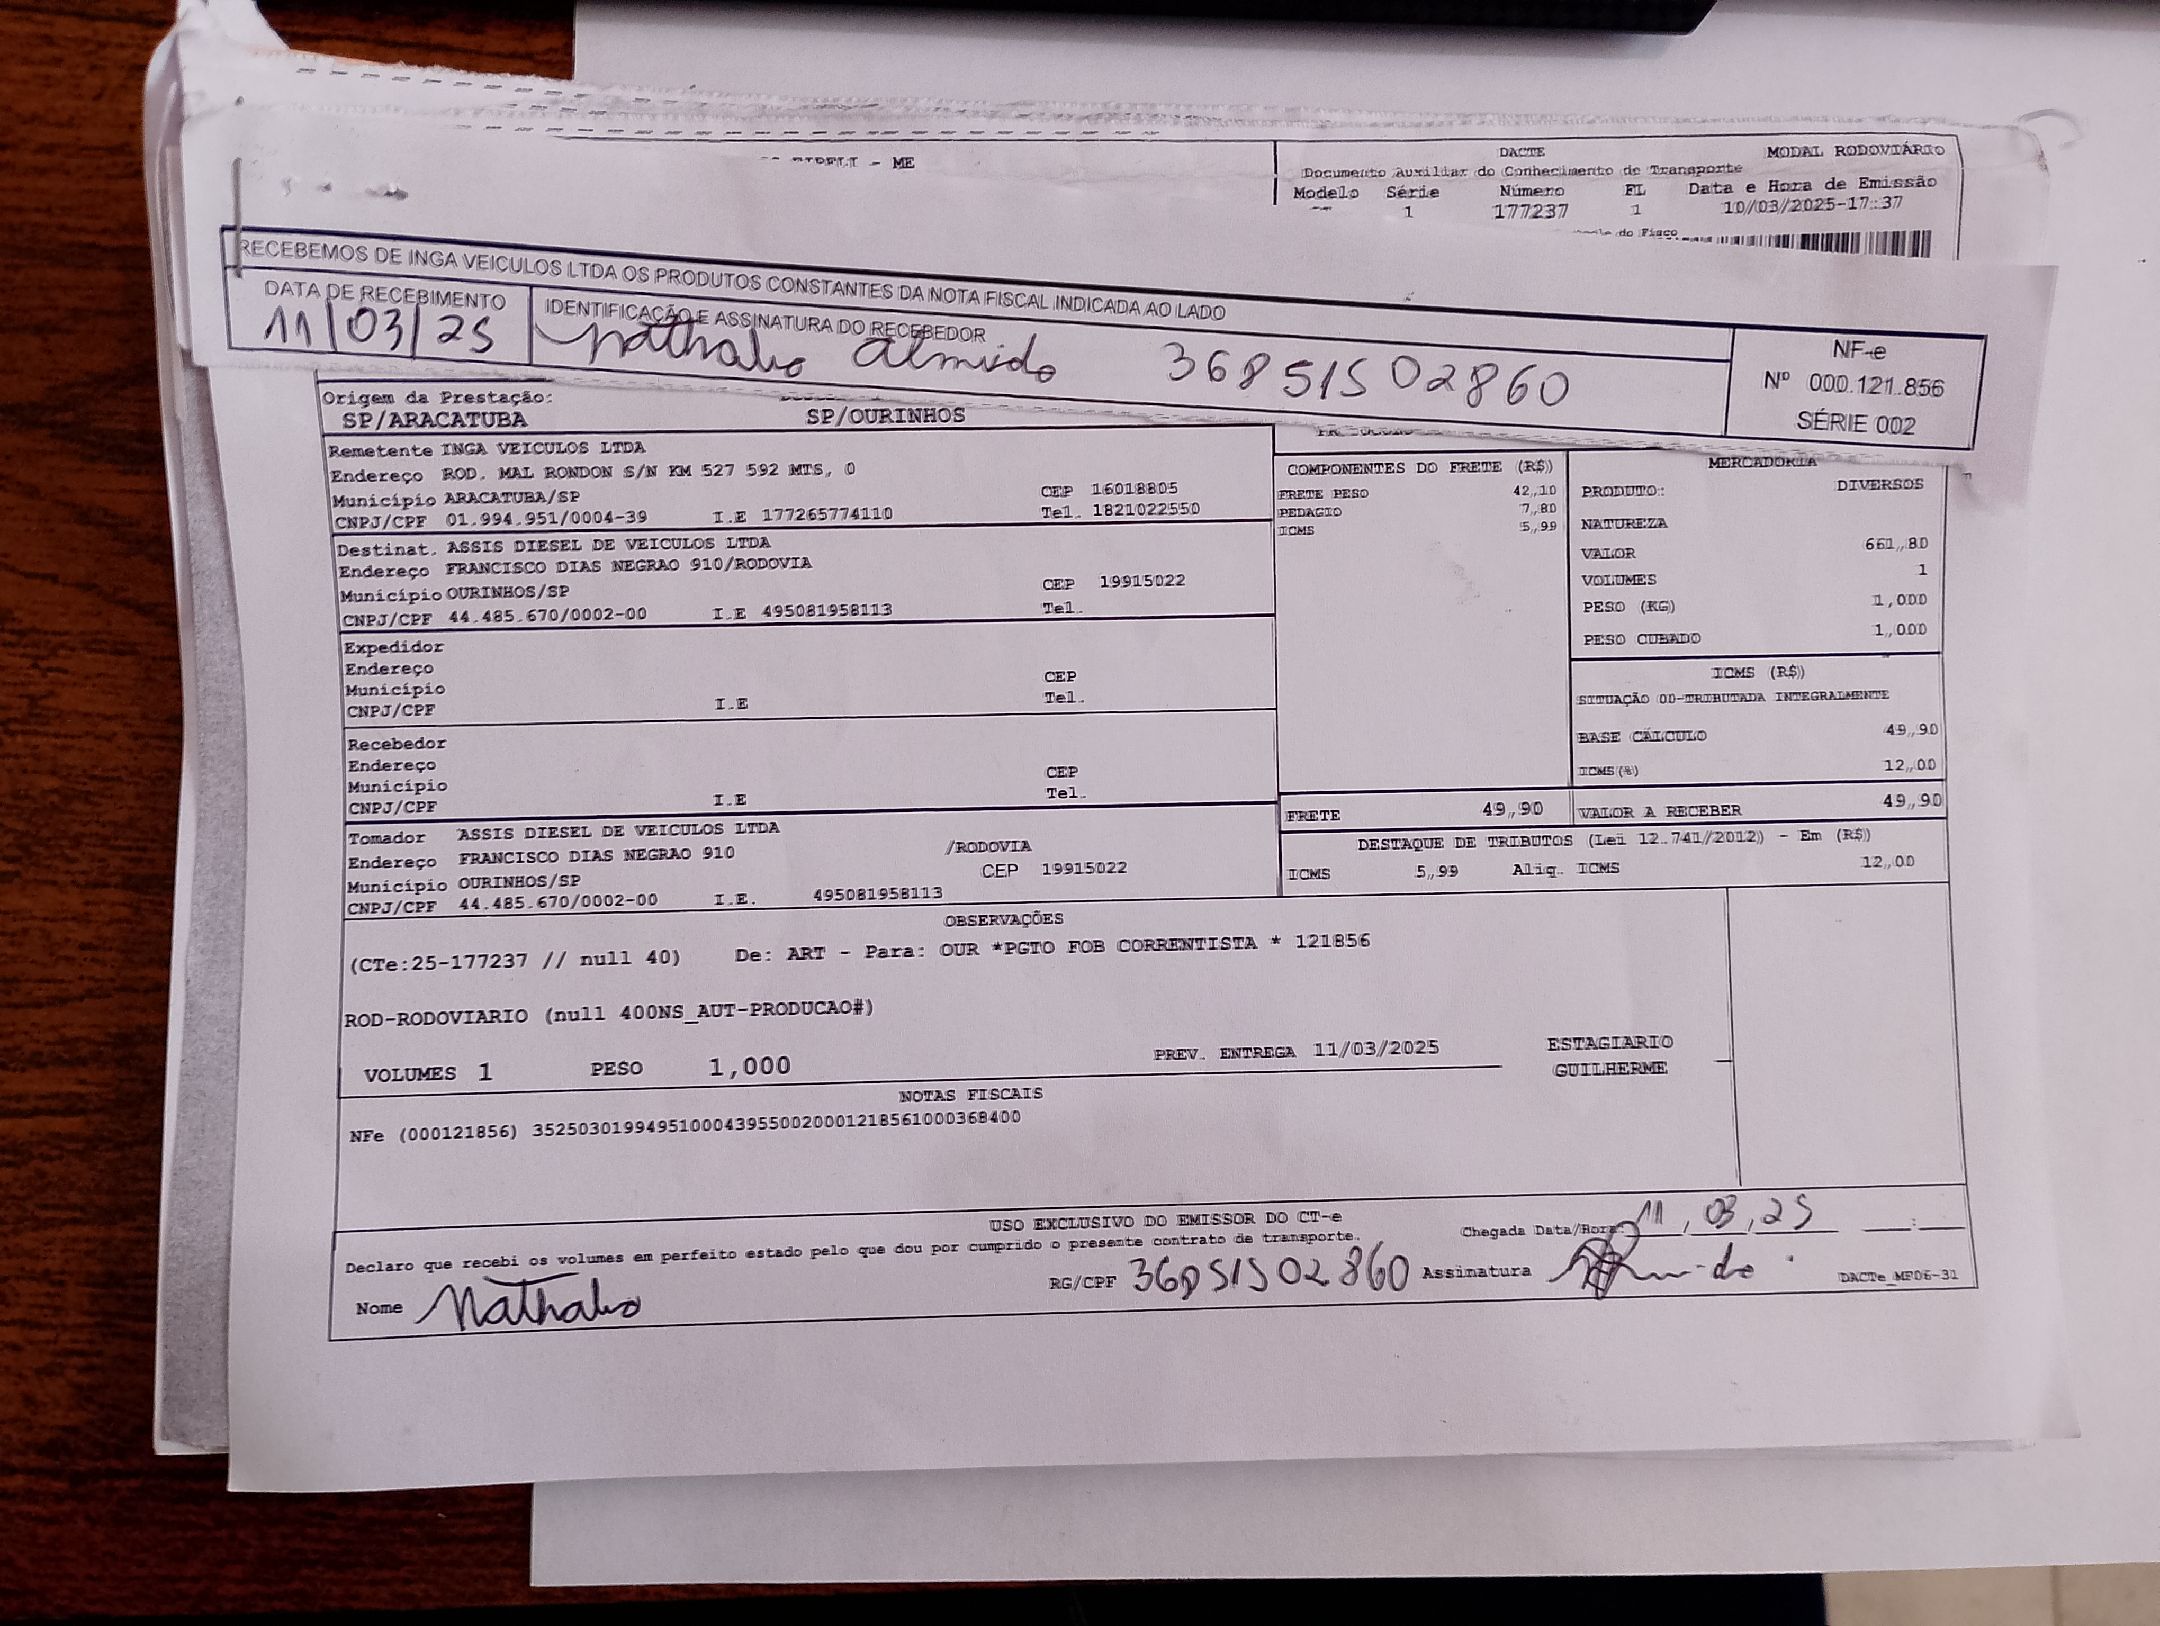 - ME
DACTE MODAL RODOVIÁRIO
Documento Auxiliar do Conhecimento de Transporte
Modelo Série Número FL Data e Hora de Emissão
1 177237 1 10/03/2025-17:37
do Fisco
RECEBEMOS DE INGA VEICULOS LTDA OS PRODUTOS CONSTANTES DA NOTA FISCAL INDICADA AO LADO
DATA DE RECEBIMENTO IDENTIFICAÇÃO E ASSINATURA DO RECEBEDOR
11/03/25 36851502860
NF-e
Nº 000.121.856
SÉRIE 002
Origem da Prestação:
SP/ARACATUBA SP/OURINHOS
Remetente INGA VEICULOS LTDA
Endereço ROD. MAL RONDON S/N KM 527 592 MTS, 0
Município ARACATUBA/SP CEP 16018805
CNPJ/CPF 01.994.951/0004-39 I.E 177265774110 Tel. 1821022550
Destinat. ASSIS DIESEL DE VEICULOS LTDA
Endereço FRANCISCO DIAS NEGRAO 910/RODOVIA
Município OURINHOS/SP CEP 19915022
CNPJ/CPF 44.485.670/0002-00 I.E 495081958113 Tel.
Expedidor
Endereço
Município CEP
CNPJ/CPF I.E Tel.
Recebedor
Endereço
Município CEP
CNPJ/CPF I.E Tel.
Tomador ASSIS DIESEL DE VEICULOS LTDA
Endereço FRANCISCO DIAS NEGRAO 910 /RODOVIA
Município OURINHOS/SP CEP 19915022
CNPJ/CPF 44.485.670/0002-00 I.E. 495081958113
COMPONENTES DO FRETE (R$)
FRETE PESO 42,10
PEDAGIO 7,80
ICMS 5,99
FRETE 49,90
MERCADORIA
PRODUTO: DIVERSOS
NATUREZA
VALOR 661,80
VOLUMES 1
PESO (KG) 1,000
PESO CUBADO 1,000
ICMS (R$)
SITUAÇÃO 00-TRIBUTADA INTEGRALMENTE
BASE CÁLCULO 49,90
ICMS(%) 12,00
VALOR A RECEBER 49,90
DESTAQUE DE TRIBUTOS (Lei 12.741/2012) - Em (R$)
ICMS 5,99 Aliq. ICMS 12,00
OBSERVAÇÕES
(CTe:25-177237 // null 40) De: ART - Para: OUR *PGTO FOB CORRENTISTA * 121856
ROD-RODOVIARIO (null 400NS_AUT-PRODUCAO#)
VOLUMES 1 PESO 1,000 PREV. ENTREGA 11/03/2025 ESTAGIARIO
GUILHERME
NOTAS FISCAIS
NFe (000121856) 35250301994951000439550020001218561000368400
USO EXCLUSIVO DO EMISSOR DO CT-e
Declaro que recebi os volumes em perfeito estado pelo que dou por cumprido o presente contrato de transporte. Chegada Data/Hora 11, 03, 25 :
Nome RG/CPF 36851502860 Assinatura DACTe_MF06-31